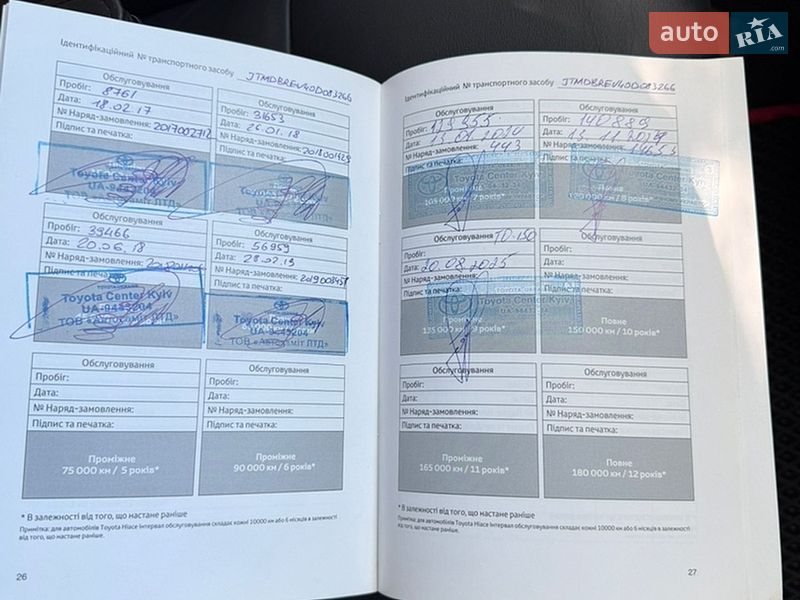 auto RIA .com
Ідентифікаційний № транспортного засобу JTMDBREV40D083266
Обслуговування
Пробіг: 8761
Дата: 18.02.17
№ Наряд-замовлення: 2017002712
Підпис та печатка:
Toyota Center Kyiv
UA-9443204
ТОВ «Автосаміт ЛТД»
Обслуговування
Пробіг: 31653
Дата: 26.01.18
№ Наряд-замовлення:
Підпис та печатка:
Toyota Center
Обслуговування
Пробіг: 39466
Дата: 20.06.18
№ Наряд-замовлення:
Підпис та печатка:
Toyota Center Kyiv
UA-9443204
ТОВ «Автосаміт ЛТД»
Обслуговування
Пробіг: 56959
Дата: 28.02.19
№ Наряд-замовлення:
Підпис та печатка:
Toyota Center Kyiv
UA-9443204
ТОВ «Автосаміт ЛТД»
Обслуговування
Пробіг:
Дата:
№ Наряд-замовлення:
Підпис та печатка:
Проміжне
75 000 км / 5 років*
Обслуговування
Пробіг:
Дата:
№ Наряд-замовлення:
Підпис та печатка:
Проміжне
90 000 км / 6 років*
* В залежності від того, що настане раніше
Примітка: для автомобілів Toyota Hiace інтервал обслуговування складає кожні 10000 км або 6 місяців в залежності
від того, що настане раніше.
26
Ідентифікаційний № транспортного засобу JTMDBREV40D083266
Обслуговування
Пробіг:
Дата:
№ Наряд-замовлення: 443
Підпис та печатка:
Проміжне
105 000 км / 7 років*
Обслуговування
Пробіг: 140889
Дата:
№ Наряд-замовлення:
Підпис та печатка:
Toyota Center Kyiv
Повне
120 000 км / 8 років*
Обслуговування ТО-150
Пробіг:
Дата: 20.08.2025
№ Наряд-замовлення:
Підпис та печатка:
Toyota Center Kyiv
135 000 км / 9 років*
Обслуговування
Пробіг:
Дата:
№ Наряд-замовлення:
Підпис та печатка:
Повне
150 000 км / 10 років*
Обслуговування
Пробіг:
Дата:
№ Наряд-замовлення:
Підпис та печатка:
Проміжне
165 000 км / 11 років*
Обслуговування
Пробіг:
Дата:
№ Наряд-замовлення:
Підпис та печатка:
Повне
180 000 км / 12 років*
* В залежності від того, що настане раніше
Примітка: для автомобілів Toyota Hiace інтервал обслуговування складає кожні 10000 км або 6 місяців в залежності
від того, що настане раніше.
27